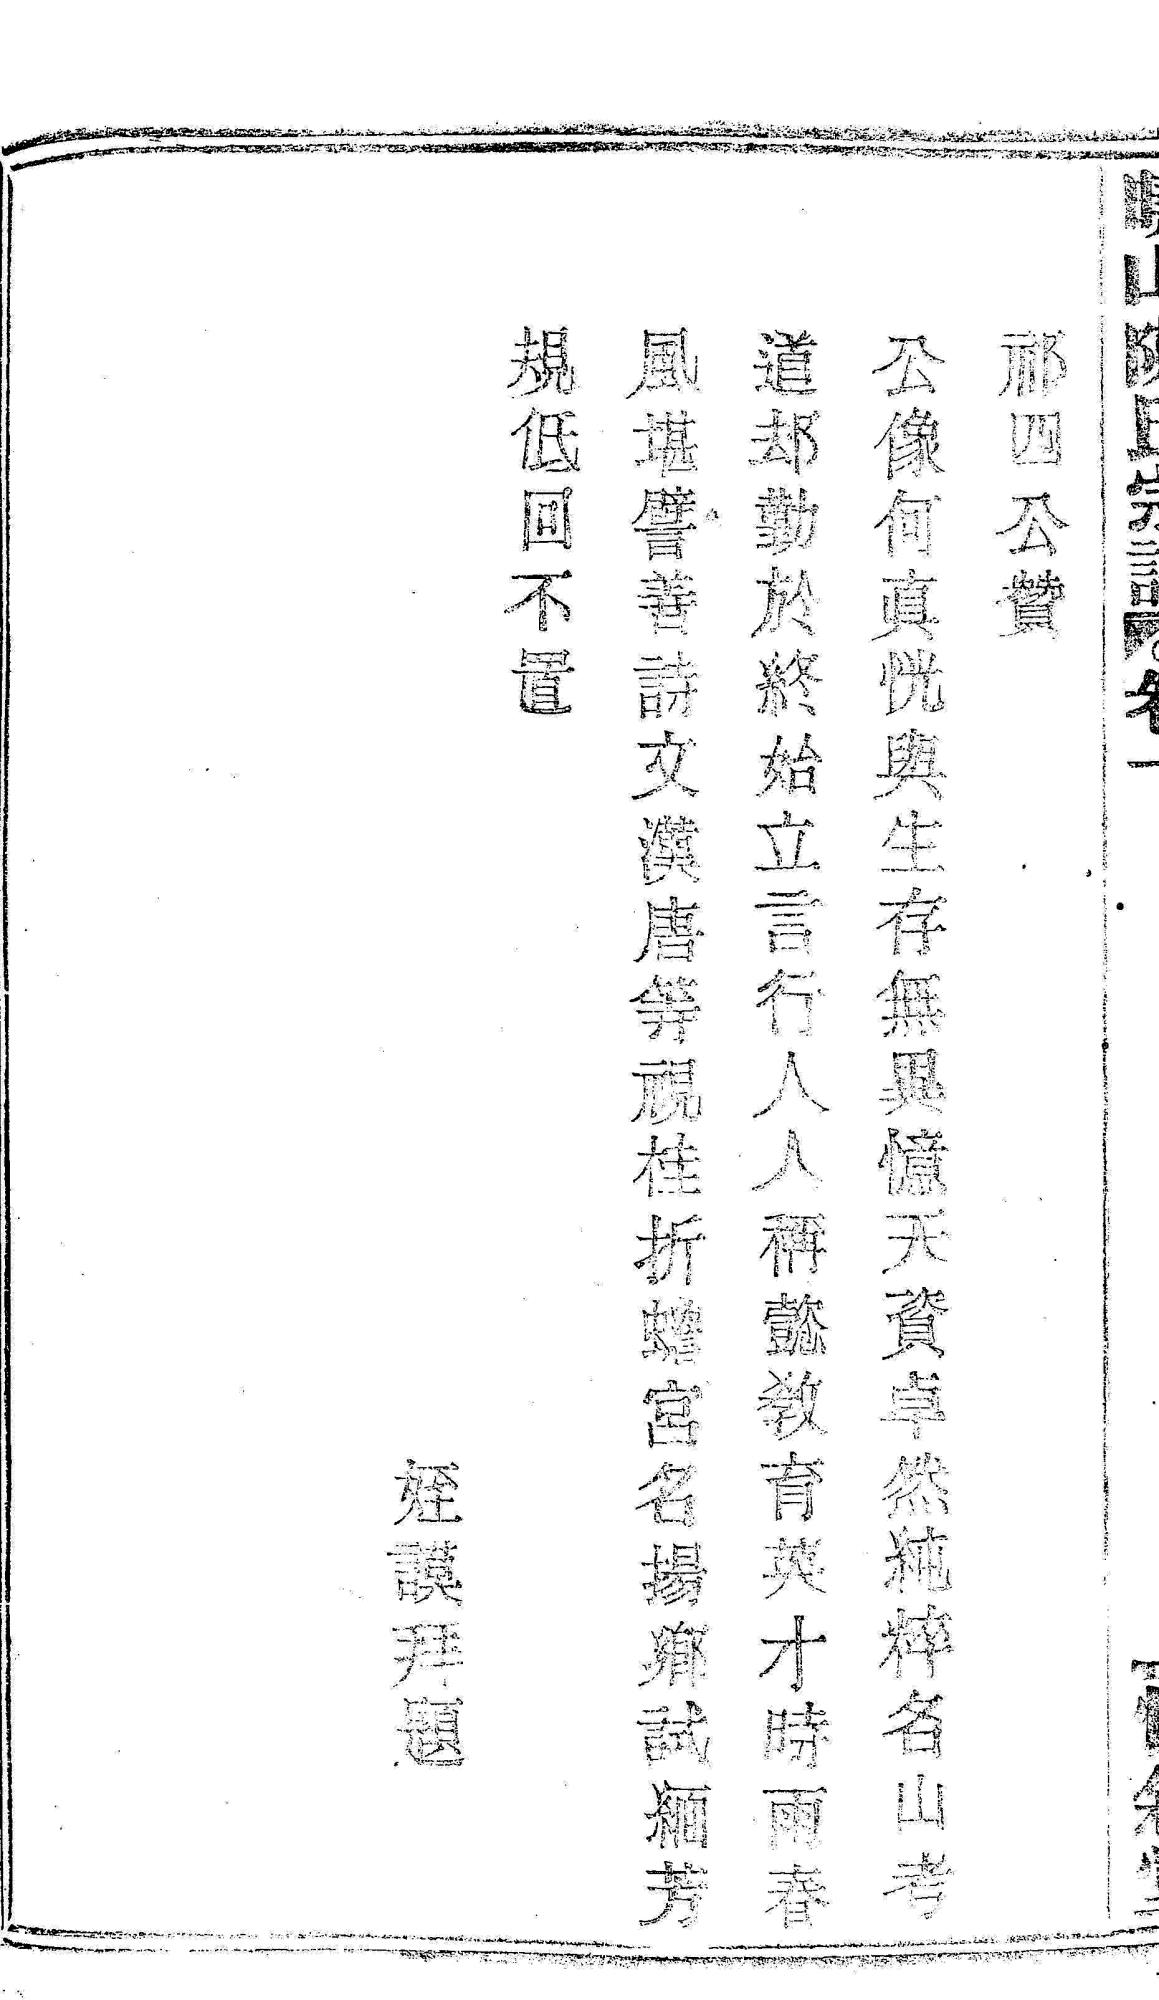 祁四公贊
公像何真恍與生存無異憶天資卓然純粹名山考
道却勤於終始立言行人人稱懿教育英才時雨春
風堪譬善詩文漢唐等視桂折蟾宮名揚鄉試緬芳
規低回不置
姪謨拜題